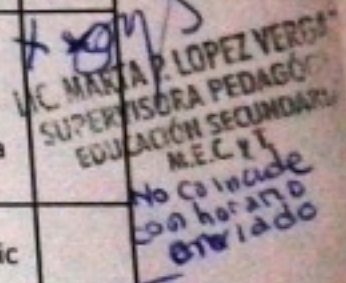 LIC. MARTA P. LOPEZ VERGA
SUPERVISORA PEDAGÓG
EDUCACIÓN SECUNDARI
M.E.C. y T.
No coincide
con horario
enviado
ic